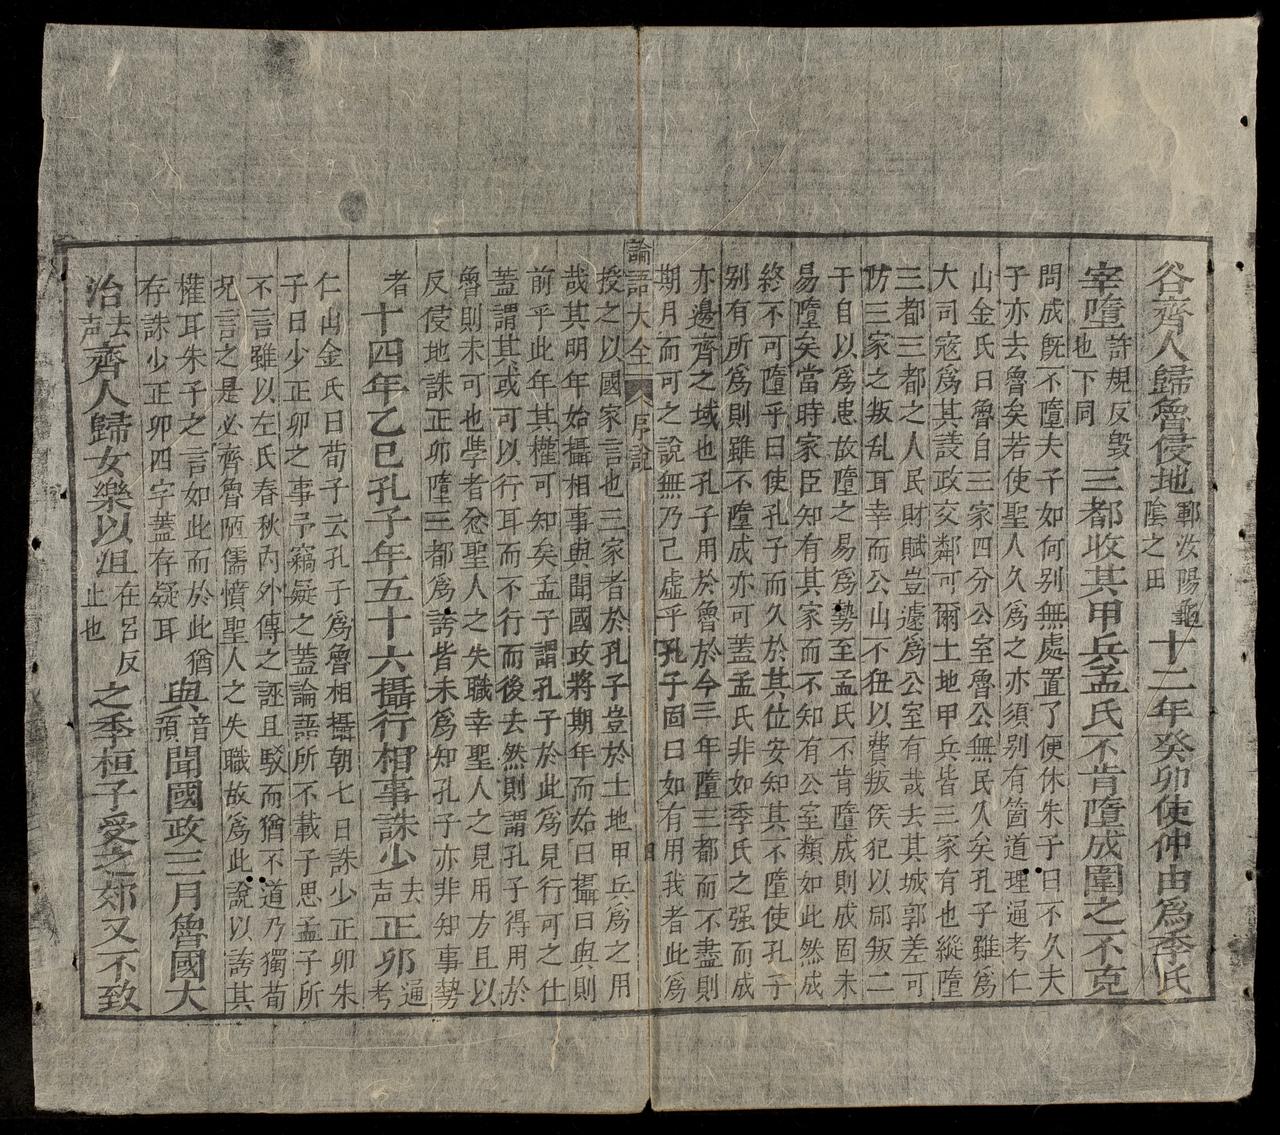 谷齊人歸魯侵地鄆汶陽龜陰之田十二年癸卯使仲由爲季氏
宰墮許規反毁地下同三都收其甲兵孟氏不肯墮成圍之不克
問成旣不墮夫子如何别無處置了便休朱子曰不久夫
子亦去魯矣若使聖人久爲之亦須别有箇道理通考仁
山金氏曰魯自三家四分公室魯公無民久矣孔子雖爲
大司寇爲其議政交鄰可爾土地甲兵皆三家有也縱墮
三都三都之人民財賦豈遽爲公室有哉去其城郭差可
防三家之叛乱耳幸而公山不狃以費叛侯犯以郈叛二
子自以爲患故墮之易爲勢至孟氏不肯墮成則成固未
易墮矣當時家臣知有其家而不知有公室類如此然成
終不可墮乎曰使孔子而久於其位安知其不墮使孔子
别有所爲則雖不墮成亦可蓋孟氏非如季氏之强而成
亦邊齊之域也孔子用於魯於今三年墮三都而不盡則
期月而可之說無乃已虛乎孔子固曰如有用我者此爲
論語大全 序說
授之以國家言也三家者於孔子豈於土地甲兵爲之用
哉其明年始攝相事與聞國政將期年而始曰攝曰與則
前乎此年其權可知矣孟子謂孔子於此爲見行可之仕
蓋謂其或可以行耳而不行而後去然則謂孔子得用於
魯則未可也學者忿聖人之失職幸聖人之見用方且以
反侵地誅正卯墮三都爲誇皆未爲知孔子亦非知事勢
者
十四年乙巳孔子年五十六攝行相事誅少去声正卯通考
仁山金氏曰荀子云孔子爲魯相攝朝七日誅少正卯朱
子曰少正卯之事予竊疑之蓋論語所不載子思孟子所
不言雖以左氏春秋內外傳之誣且駁而猶不道乃獨荀
况言之是必齊魯陋儒憤聖人之失職故爲此說以誇其
權耳朱子之言如此而於此猶
存誅少正卯四字蓋存疑耳
與音預聞國政三月魯國大
治去声齊人歸女樂以沮在呂反止也之季桓子受之郊又不致